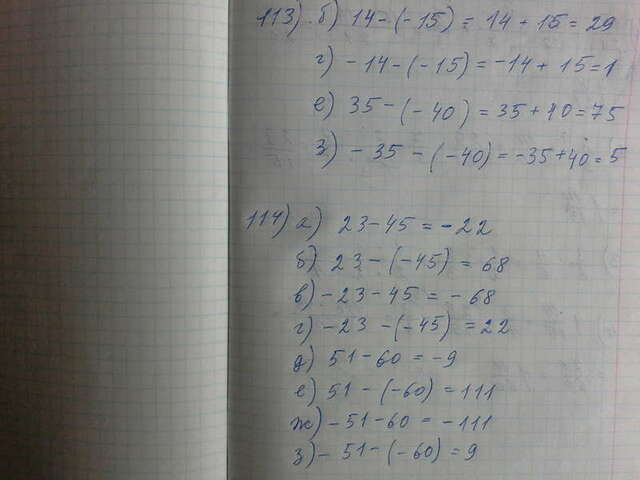 113) б) 14 - (-15) = 14 + 15 = 29
г) - 14 - (-15) = -14 + 15 = 1
е) 35 - (-40) = 35 + 40 = 75
з) - 35 - (-40) = -35 + 40 = 5
114) а) 23 - 45 = - 22
б) 23 - (-45) = 68
в) - 23 - 45 = - 68
г) - 23 - (-45) = 22
д) 51 - 60 = -9
е) 51 - (-60) = 111
ж) - 51 - 60 = - 111
з) - 51 - (-60) = 9